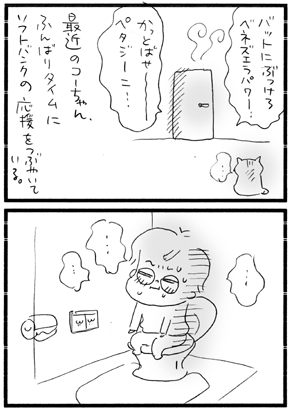 バットにぶつけろ
ベネズエラパワー…
かっとばせー
ペタジーニ…
最近のコーちゃん、
ふんばりタイムに
ソフトバンクの応援をつぶやいて
いる。
…
…
…
…